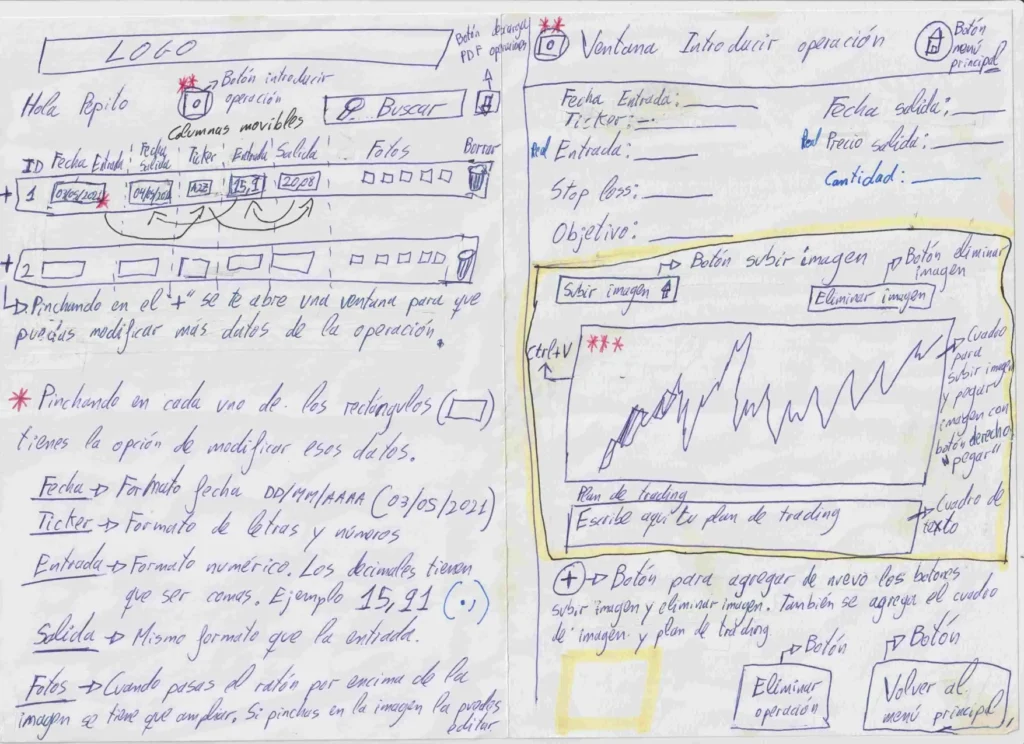 LOGO
Botón descarga
PDF operaciones
**
Botón introducir
operación
Hola Pepito
Buscar
Columnas movibles
ID Fecha Entrada Fecha Salida Ticker Entrada Salida Fotos Borrar
+ 1 03/05/2021 * 04/05/2021 A2Z 15,91 20,08
+ 2
Pinchando en el "+" se te abre una ventana para que
puedas modificar más datos de la operación.
* Pinchando en cada uno de los rectángulos ( )
tienes la opción de modificar esos datos.
Fecha → Formato fecha DD/MM/AAAA (03/05/2021)
Ticker → Formato de letras y números
Entrada → Formato numérico. Los decimales tienen
que ser comas. Ejemplo 15,91 (.,)
Salida → Mismo formato que la entrada.
Fotos → Cuando pasas el ratón por encima de la
imagen se tiene que ampliar. Si pinchas en la imagen la puedes
editar.
**
Ventana Introducir operación
Botón
menú
principal
Fecha Entrada:
Ticker:
Real Entrada:
Stop loss:
Objetivo:
Fecha salida:
Real Precio salida:
Cantidad:
Botón subir imagen
Botón eliminar
imagen
Subir imagen
Eliminar imagen
Ctrl+V
***
Cuadro
para
subir imagen
y pegar
imagen con
botón derecho
"pegar"
Plan de trading
Escribe aquí tu plan de trading
Cuadro de
texto
+ → Botón para agregar de nuevo los botones
subir imagen y eliminar imagen. También se agrega el cuadro
de imagen y plan de trading
Botón
Botón
Eliminar
operación
Volver al
menú principal